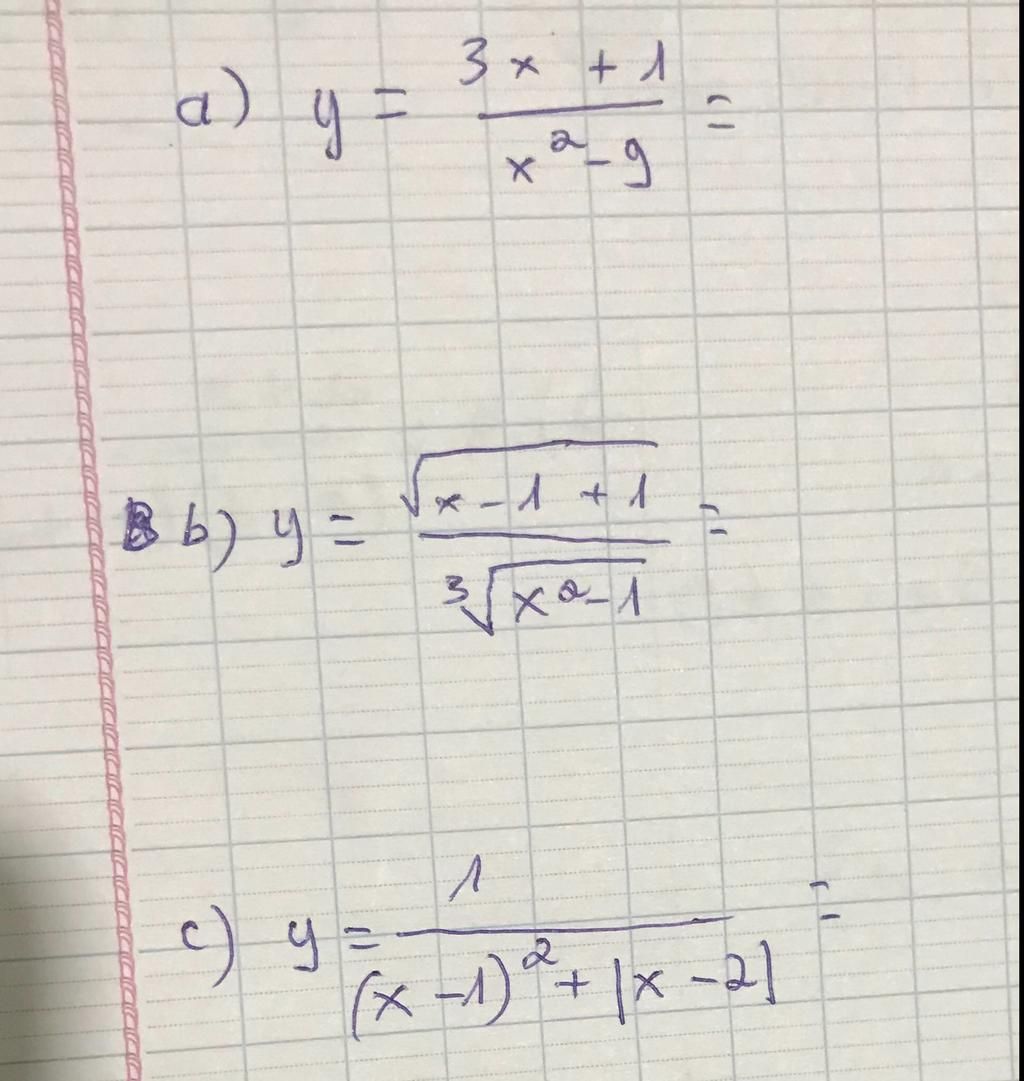 a) y = (3x + 1)/(x² - 9) =
b) y = √(x - 1 + 1)/∛(x² - 1) =
c) y = 1/((x - 1)² + |x - 2|) =